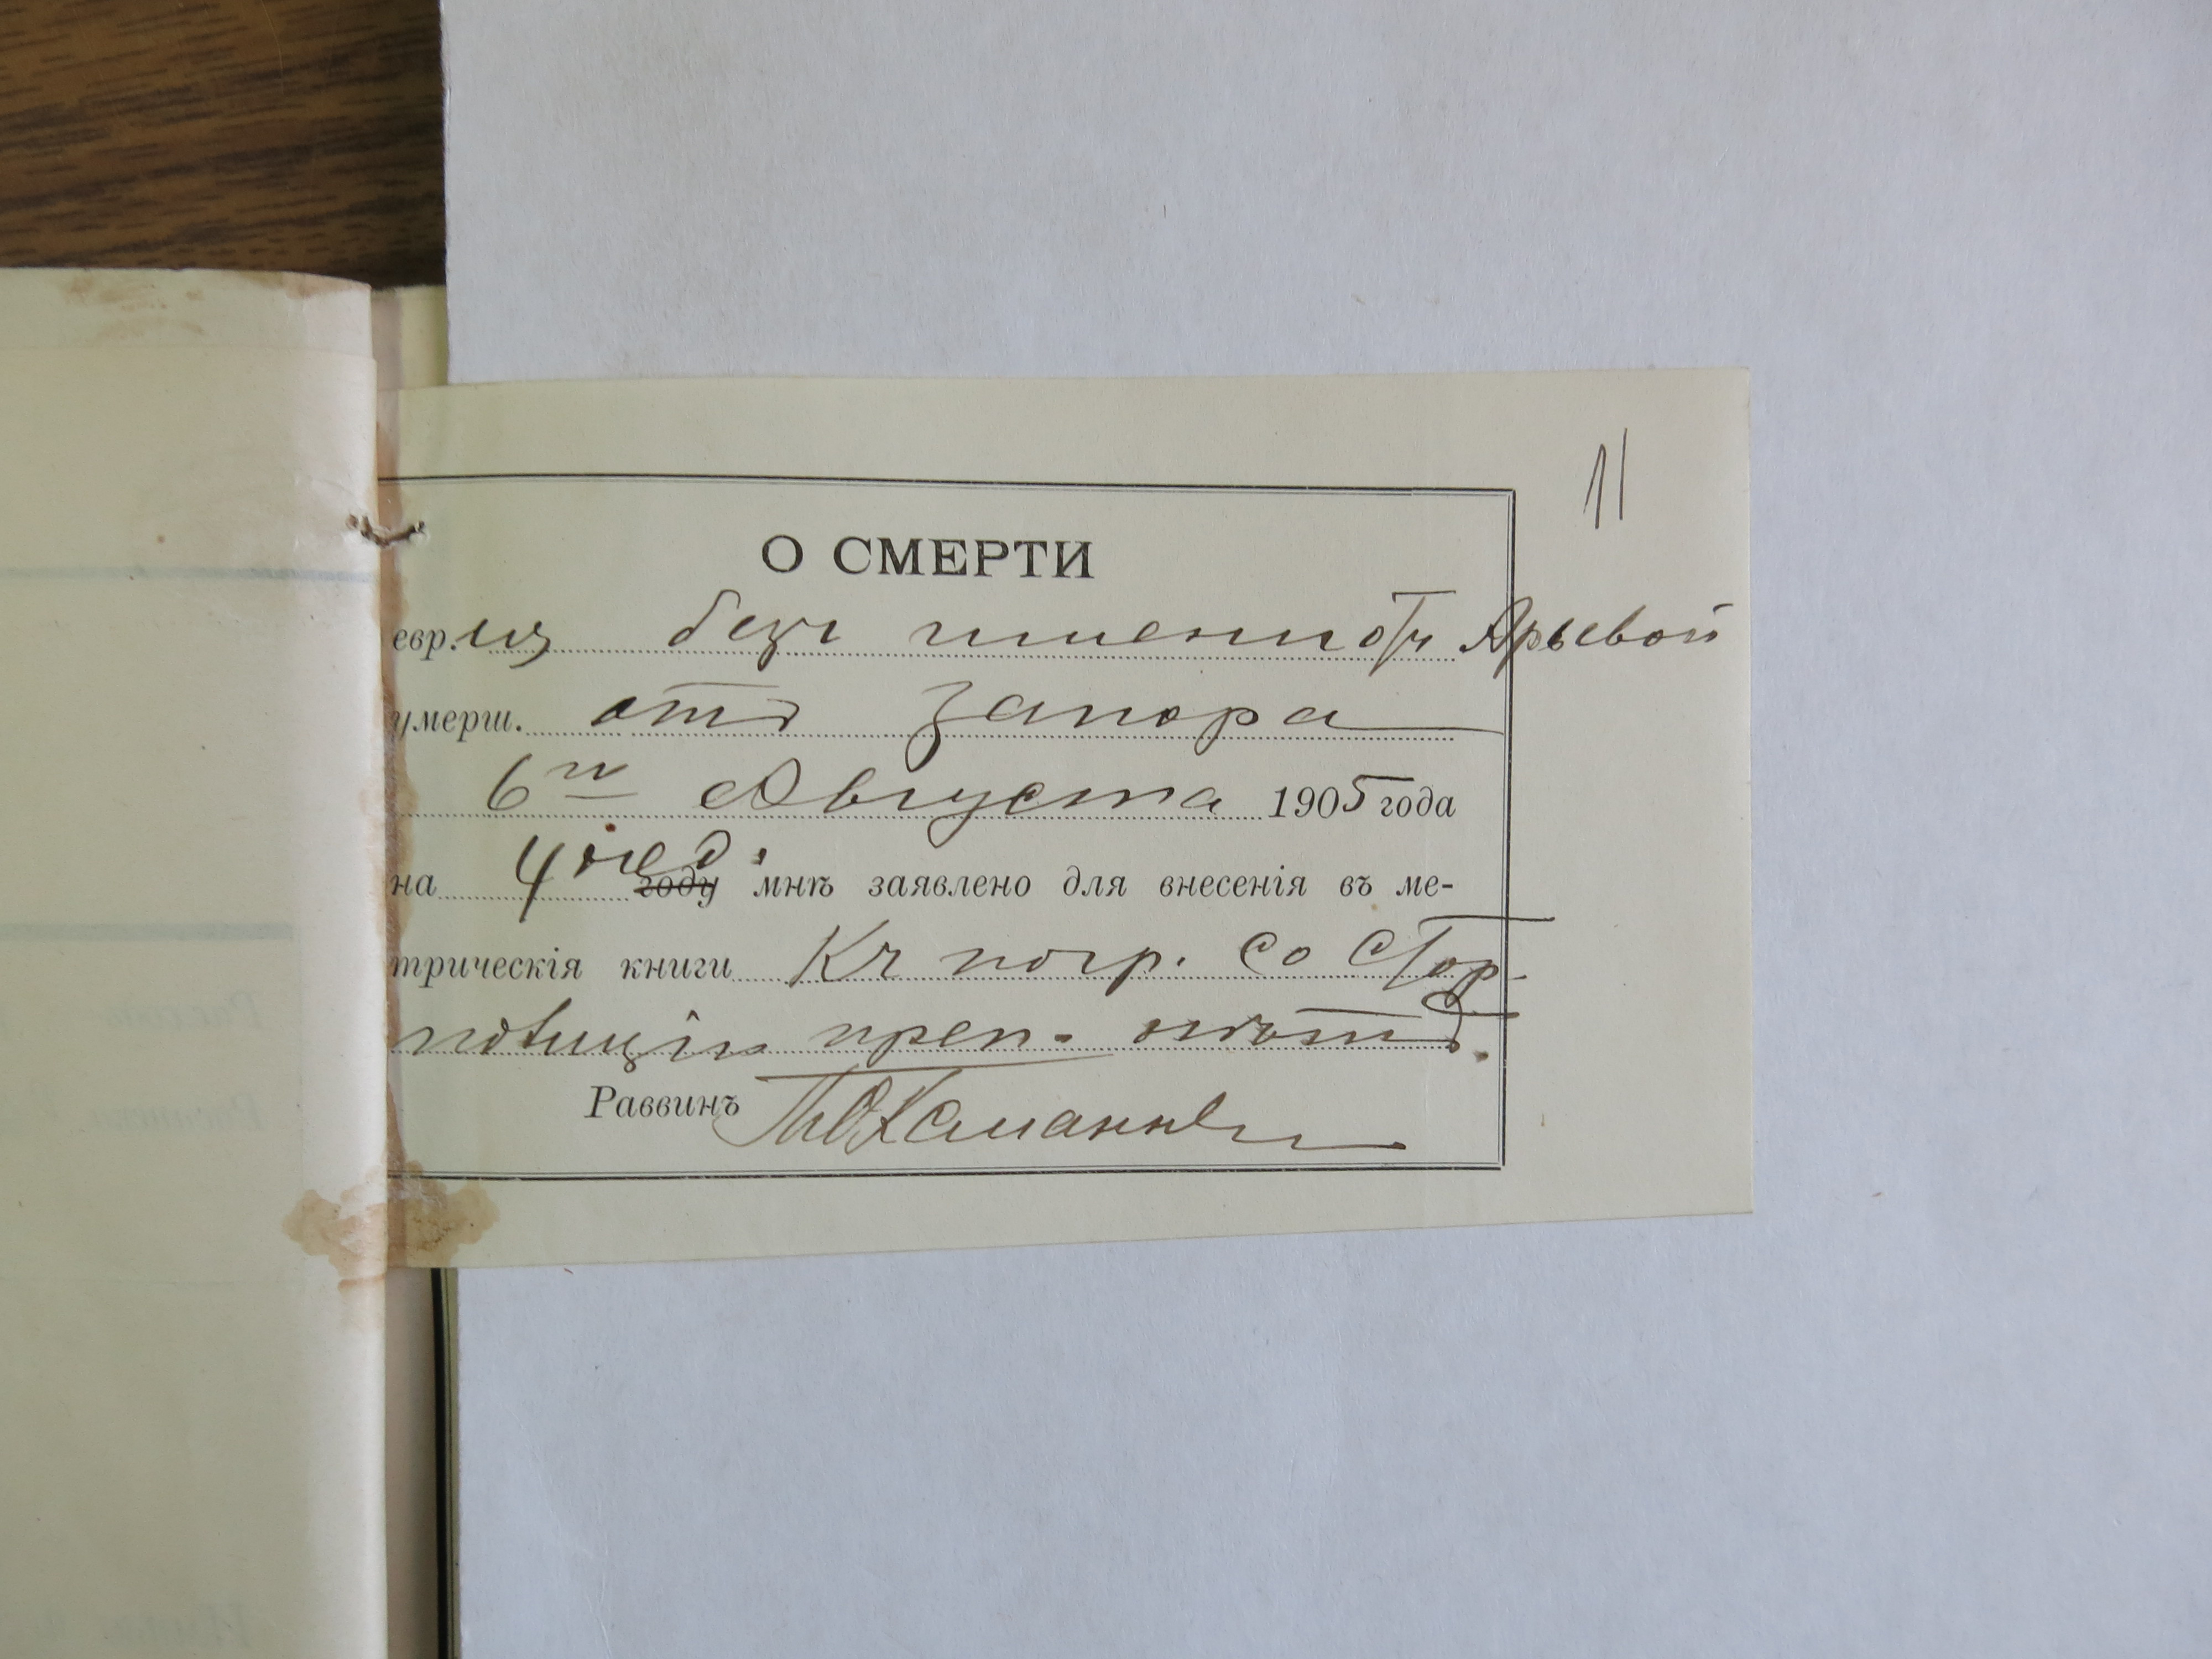 11
О СМЕРТИ
евр. ия безъ имени о/ч Арьевой
умерш. отъ запора
6го Августа 1905 года
на 4 нед. году мнѣ заявлено для внесенія въ ме-
трическія книги Къ погр. со стор.
полиціи преп. нѣтъ.
Раввинъ